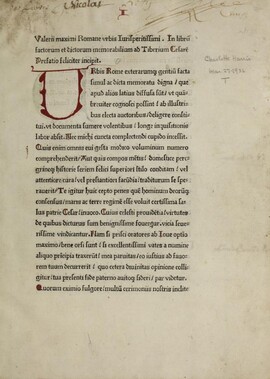 I
Valerii maximi Romane vrbis Iurisperitissimi. In librū
factorum et dictorum memorabilium ad Tiberium Cesarē
Prefatio feliciter incipit.
URbis Rome exterarumq; gentiū facta
simul ac dicta memoratu digna/ que
apud alios latius diffusa sūt/ vt quā
breuiter cognosci possint/ ab illustribus
electa auctoribus/ deligere constitui/
vt documenta sumere volentibus/ longe inquisitionis
labor absit. Nec michi cuncta complectendi cupido incessit.
Quis enim omnis eui gesta modico voluminum numero
comprehenderit/ Aut quis compos mētis/ domestice peregrineq;
historie seriem felici superiorū stilo conditam/ vel
attentiori cura/ vel prestantiori facūdia/ traditurum se sperauerit/
Te igitur huic cepto penes quē hominum deorūq;
consensus/ maris ac terre regimē esse voluit certissima salus
patrie Cesar inuoco. Cuius celesti prouidētia/ virtutes
de quibus dicturus sum benignissime fouentur. vicia seuerissime
vindicantur. Nam si prisci oratores ab Ioue optimo
maximo/ bene orsi sunt/ si excellentissimi vates a numine
aliquo principia traxerūt/ mea paruitas/ eo iustius ad fauorem
tuum decurrerit/ quo cetera diuinitas opinione colligitur/
tua presenti fide paterno auitoq; sideri/ par videtur.
Quorum eximio fulgore/ multū cerimoniis nostris inclite